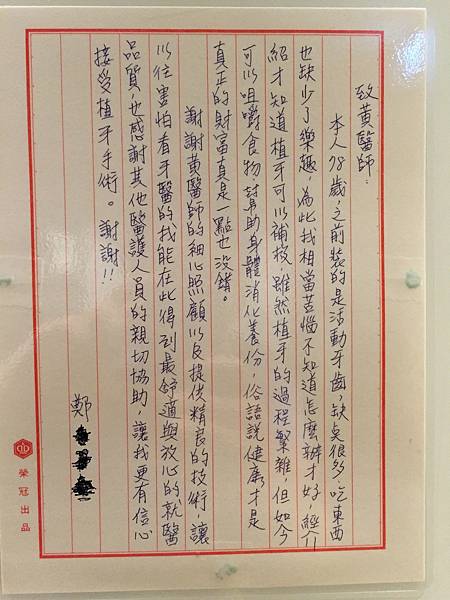 致黃醫師：
本人78歲，之前裝的是活動牙齒，缺臭很多，吃東西
也缺少了樂趣，為此我相當苦惱不知道怎麼辦才好，經介
紹才知道植牙可以補救，雖然植牙的過程繁雜，但如今
可以咀嚼食物幫助身體消化養份，俗語說健康才是
真正的財富真是一點也沒錯。
謝謝黃醫師的細心照顧以及提供精良的技術，讓
以往害怕看牙醫的我能在此得到最舒適與放心的就醫
品質，也感謝其他醫護人員的親切協助，讓我更有信心
接受植牙手術。謝謝!!
鄭
榮冠出品